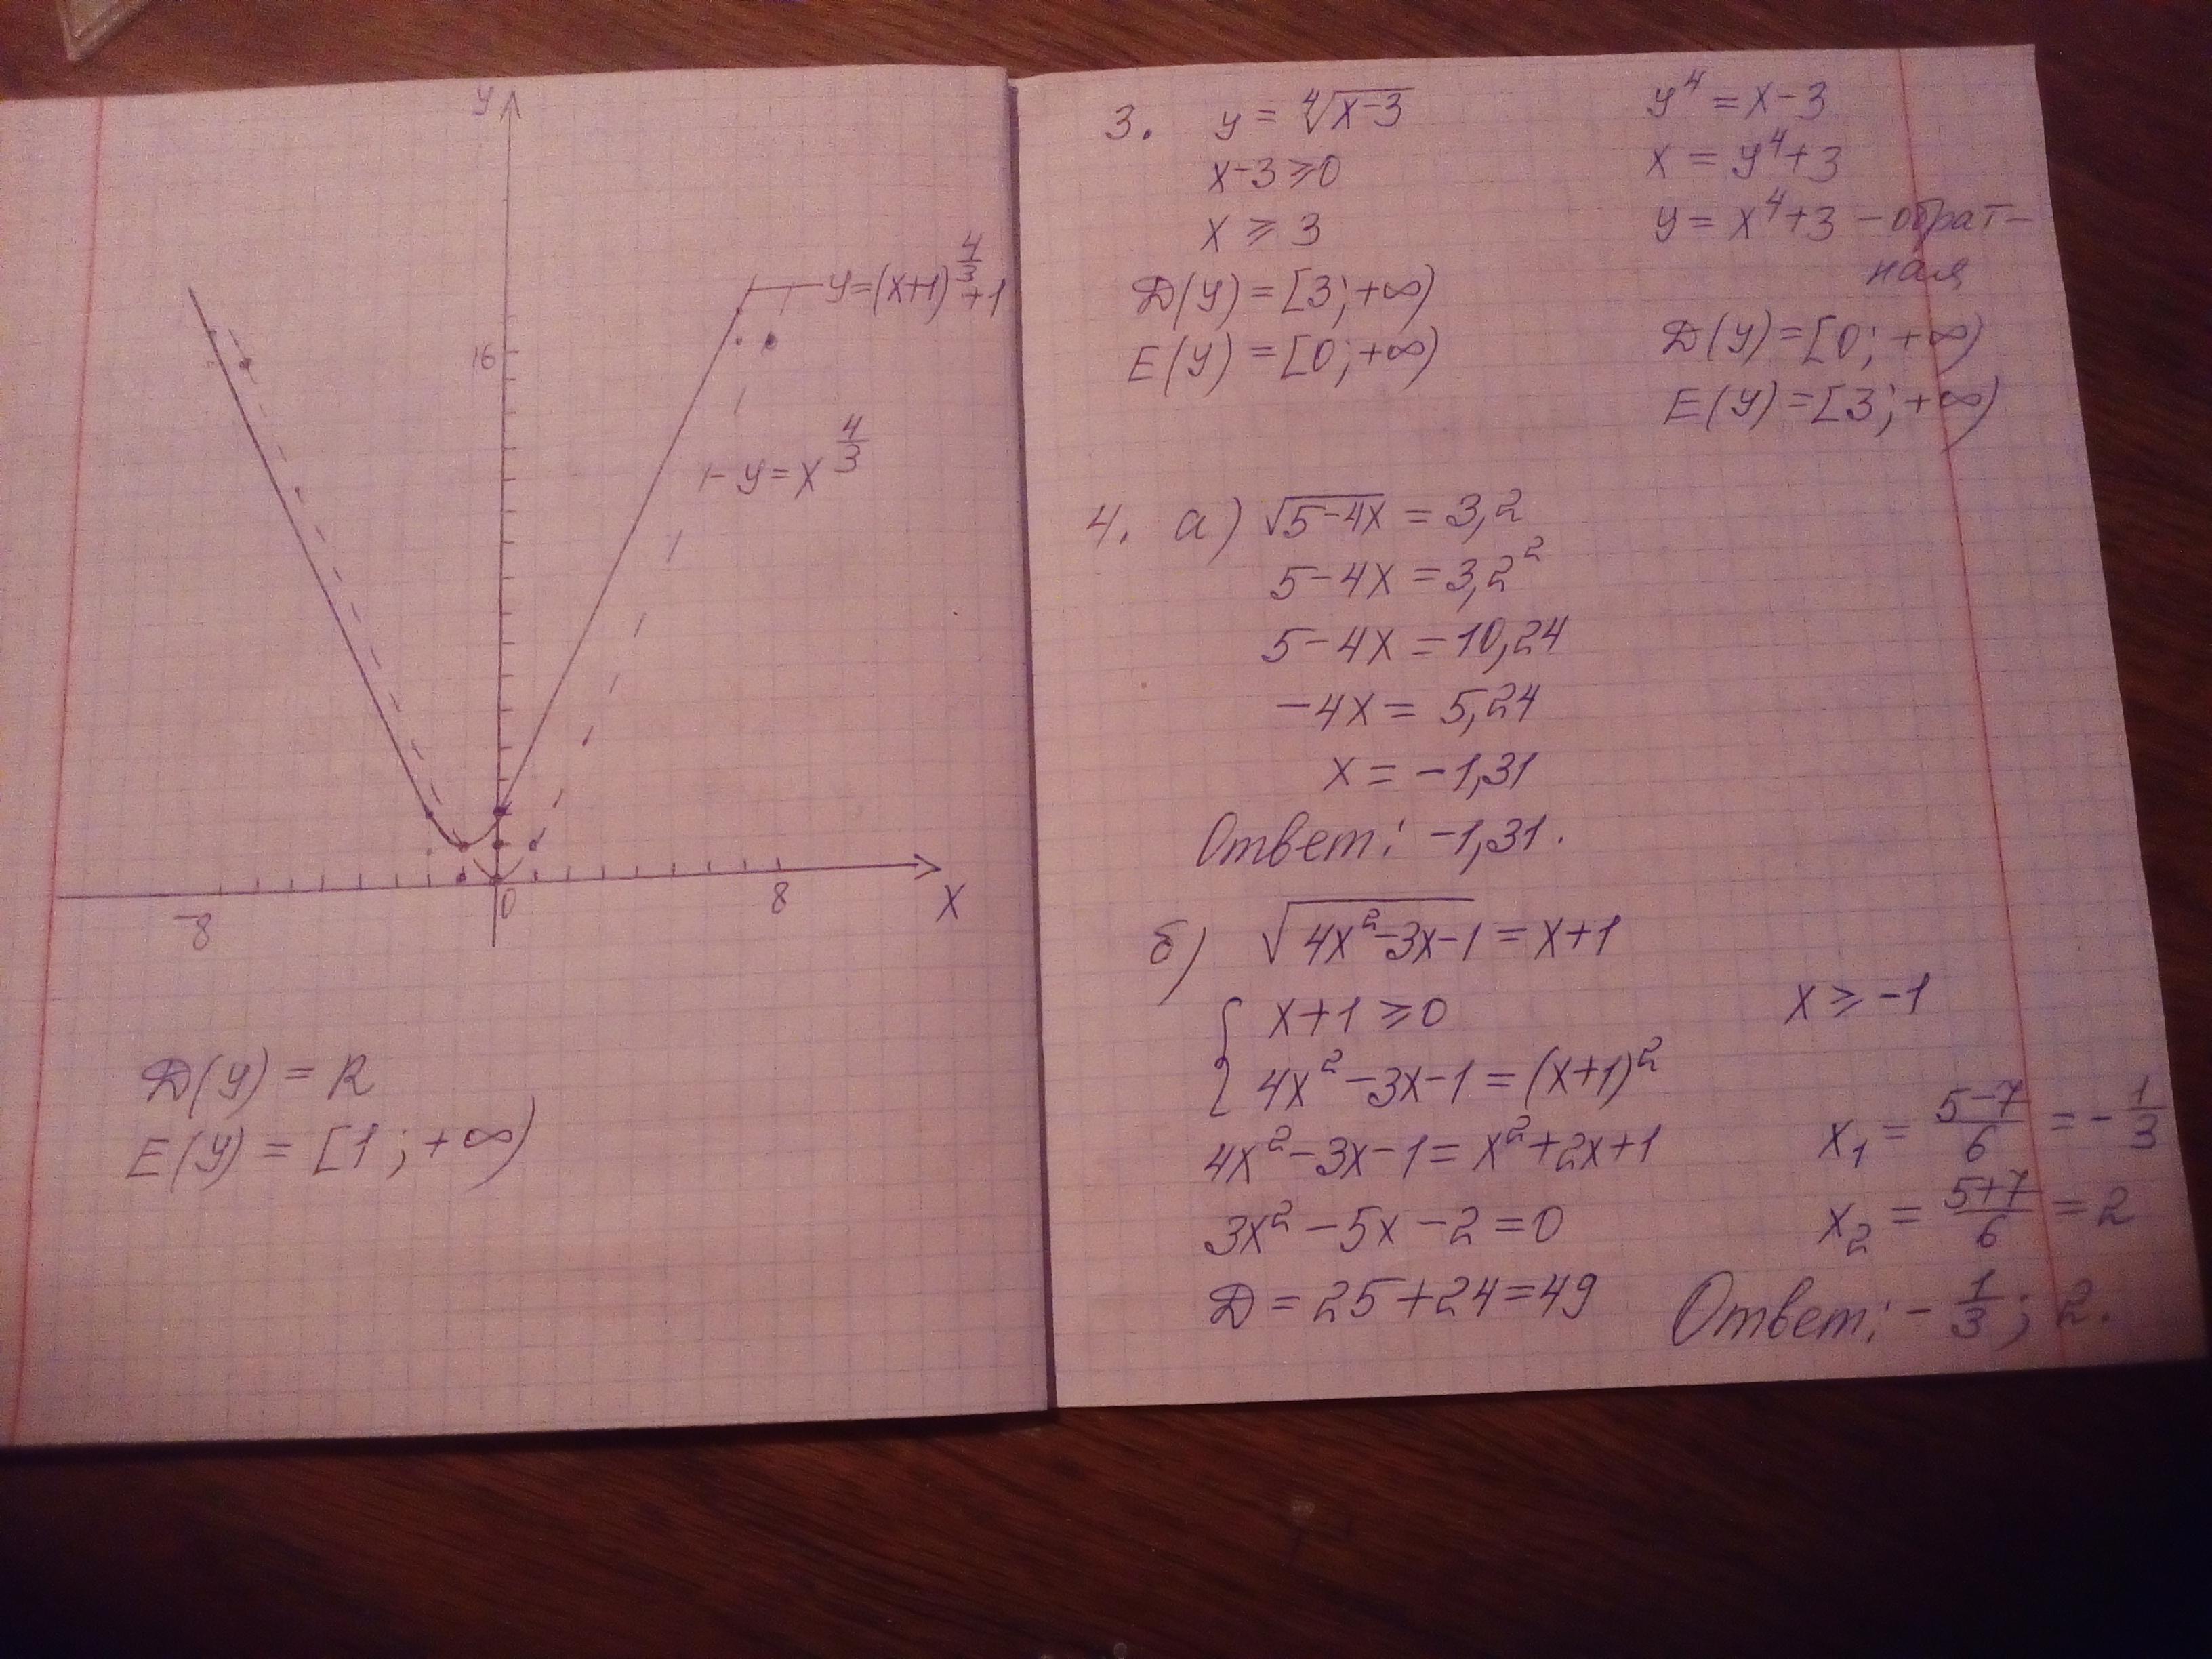 y
y=(x+1)^{4/3}+1
16
y=x^{4/3}
-8
0
8
x
D(y) = R
E(y) = [1; +∞)
3. y = ⁴√(x-3)
x-3≥0
x ≥ 3
D(y) = [3; +∞)
E(y) = [0; +∞)
y⁴ = x-3
x = y⁴+3
y = x⁴+3 - обрат-
ная
D(y)=[0; +∞)
E(y)=[3; +∞)
4. а) √(5-4x) = 3,2
5-4x = 3,2²
5-4x = 10,24
-4x = 5,24
x = -1,31
Ответ: -1,31.
б) √(4x²-3x-1) = x+1
{ x+1 ≥ 0
4x²-3x-1 = (x+1)²
4x²-3x-1 = x²+2x+1
3x²-5x-2=0
D = 25+24=49
x ≥ -1
x₁ = (5-7)/6 = -1/3
x₂ = (5+7)/6 = 2
Ответ: -1/3; 2.